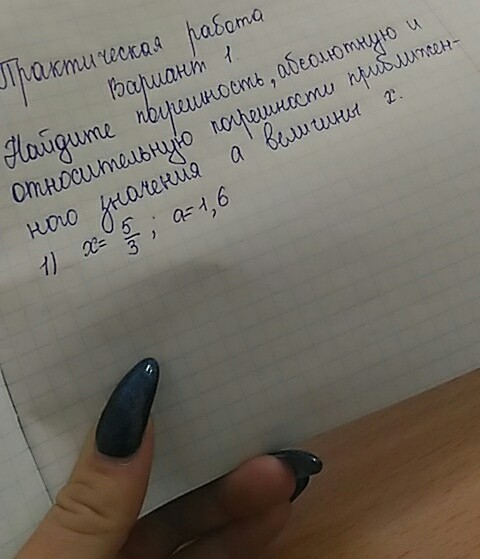 Практическая работа
Вариант 1.
Найдите погрешность, абсолютную и
относительную погрешности приближен-
ного значения а величины х.
1) x= 5/3 ; a=1,6